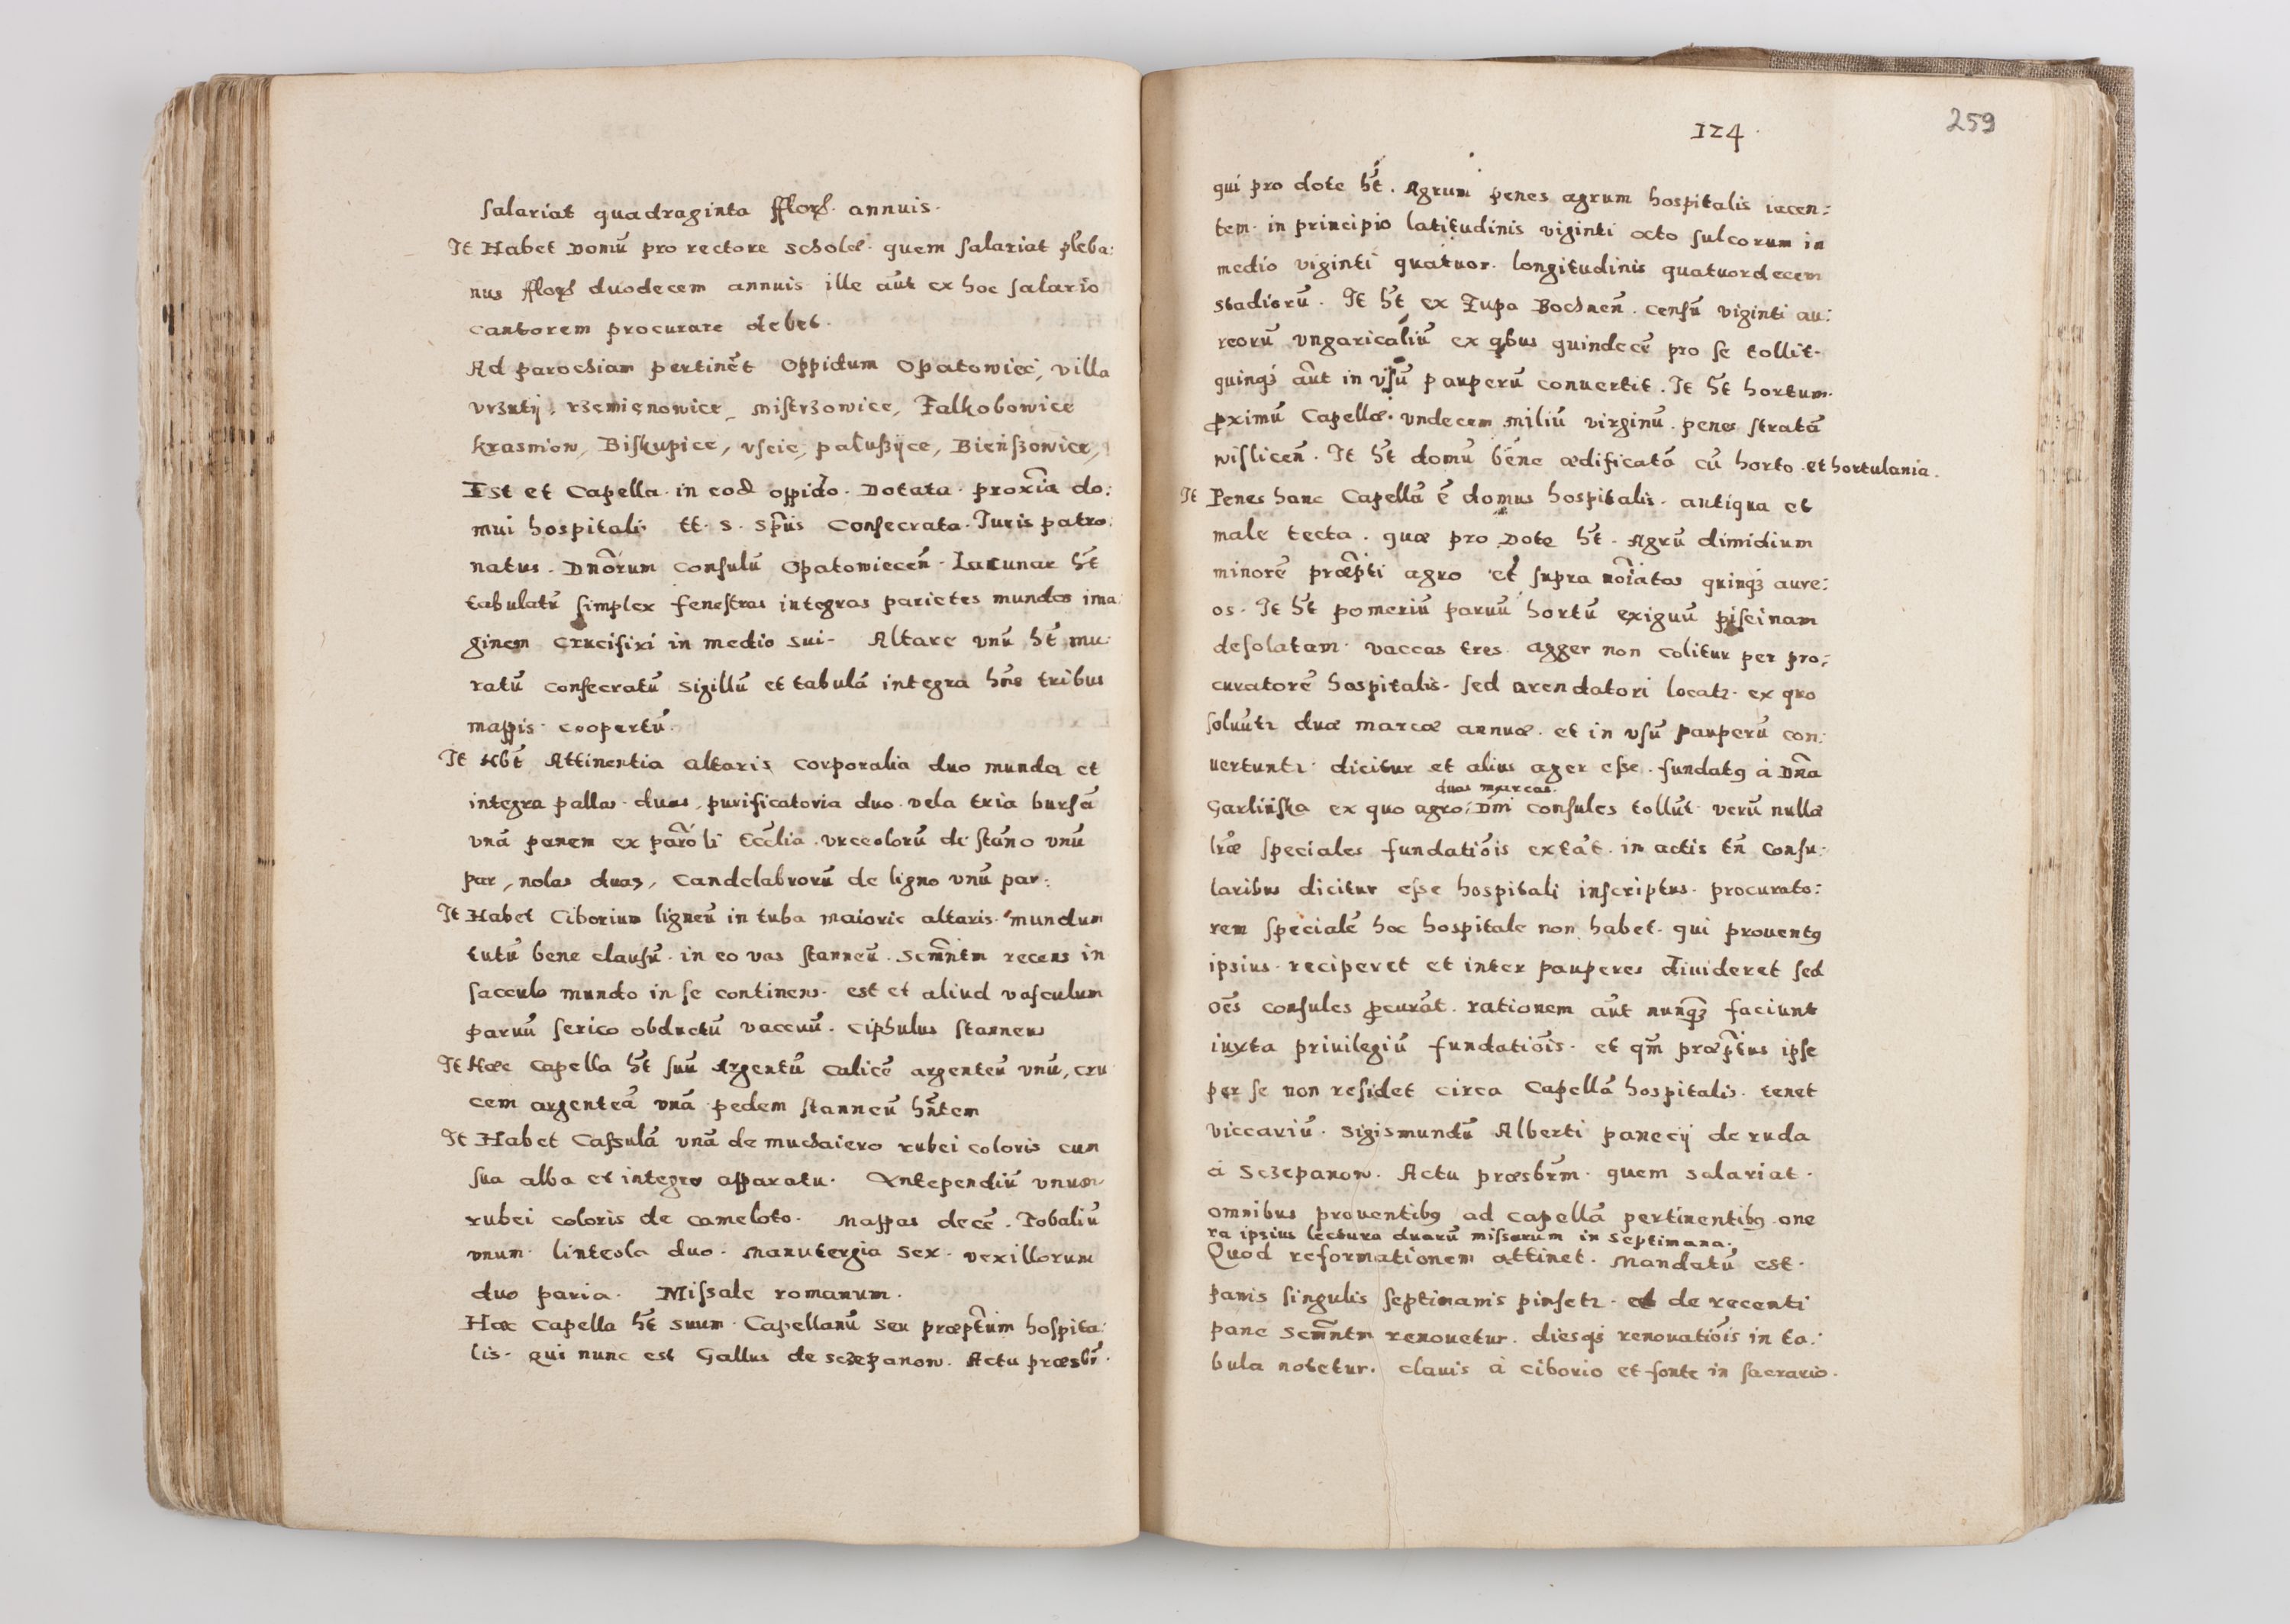 salariat quadraginta fflor. annuis.
It Habet Domū pro rectore scholæ. quem salariat pleba:
nus fflor. duodecem annuis ille aūt ex hoc salario
cantorem procurare debet.
Ad parochiam pertinēt oppidum Opatowiec, villa
vrzutÿ, rzemięnowice, Mistrzowice, Falkobowice
krasmion, Biskupice, vscie, pałuszÿce, Bieńszowice,
Est et Capella in eod oppido. Dotata. proxīa do:
mui hospitali tt. S. Spūs Consecrata. Iuris patro:
natus. Dnōrum consulū Opatowiecen̄. Lacunar ht̄
tabulatū simplex fenestras integras parietes mundos ima:
ginem crucifixi in medio sui. Altare vnū ht̄ mu:
ratū consecratū sigillū et tabulā integra hn̄s tribus
mappis coopertū.
It Hbt̄ Attinentia altaris corporalia duo munda et
integra pallas duas, purificatoria duo vela tria bursā
vnā panem ex parōli Ecclīa. vrceolorū de stāno vnū
par, nolas duas, candelabrorū de ligno vnū par.
It Habet Ciborium ligneū in tuba maioris altaris mundum
tutū bene clausū. in eo vas stanneū. Scm̄ntm recens in
sacculo mundo in se continens. est et aliud vasculum
paruū serico obductū vacuū. ciphulus stanneus
It Hæc Capella ht̄ suū Argentū calicē argenteū vnū, cru
cem argenteā vnā pedem stanneū hn̄tem
It Habet Casulā vnā de muchaiero rubei coloris cum
sua alba et integro apparatu. Antependiū vnum
rubei coloris de cameloto. Mappas decē. Tobaliū
vnum. linteola duo. Manutergia sex. vexillorum
duo paria. Missale romanum.
Hæc Capella ht̄ suum Capellanū seu præptūm hospita:
lis. qui nunc est Gallus de sczepanow. Actu præsbr̄.
124.
259
qui pro dote ht̄. Agrum penes agrum hospitalis iacen:
tem. in principio latitudinis viginti octo sulcorum in
medio viginti quatuor. longitudinis quatuordecem
stadiorū. It ht̄ ex Zupa Bochnen̄. censū viginti au:
reorū vngaricaliū ex qbus quindecē pro se tollit.
quinqȝ aūt in vsū pauperū conuertit. It ht̄ hortum.
pximū Capellæ. vndecem miliū virginū. penes stratā
wislicen̄. It ht̄ domū bēne ædificatā cū horto et hortulania.
It Penes hanc Capellā ē domus hospitalis antiqua et
male tecta. quæ pro Dote ht̄. Agrū dimidium
minorē præpti agro et supra noīatos quinqȝ aure:
os. It ht̄ pomeriū paruū hortū exiguū piscinam
desolatam. vaccas tres. agger non colitur per pro:
curatorē hospitalis. sed arendatori locatr. ex quo
soluūtr duæ marcæ annuæ. et in vsū pauperū con:
uertuntr. dicitur et alius ager esse. fundatꝯ à Dn̄a
duas marcas.
Garlińska ex quo agro, Dn̄i consules tollūt. verū nullæ
lr̄æ speciales fundatiōis extāt. in actis tn̄ consu:
laribus dicitur esse hospitali inscriptus. procurato:
rem specialē hoc hospitale non habet. qui prouentꝯ
ipsius reciperet et inter pauperes diuideret sed
oēs consules pcurāt. rationem aūt nunqȝ faciunt
iuxta priuilegiū fundatiōis. et qm̄ præptus ipse
per se non residet circa Capellā hospitalis. tenet
viccariū. Sigismundū Alberti panecij de ruda
à Sczepanow. Actu præsbrm. quem salariat.
omnibus prouentibꝯ ad capellā pertinentibꝯ. one
ra ipsius lectura duarū missarum in septimana.
Quod reformationem attinet. Mandatū est.
panis singulis septimanis pinsetr. et de recenti
pane Scm̄ntm renouetur. diesqȝ renouatiōis in ta:
bula notetur. clauis à ciborio et fonte in sacrario.